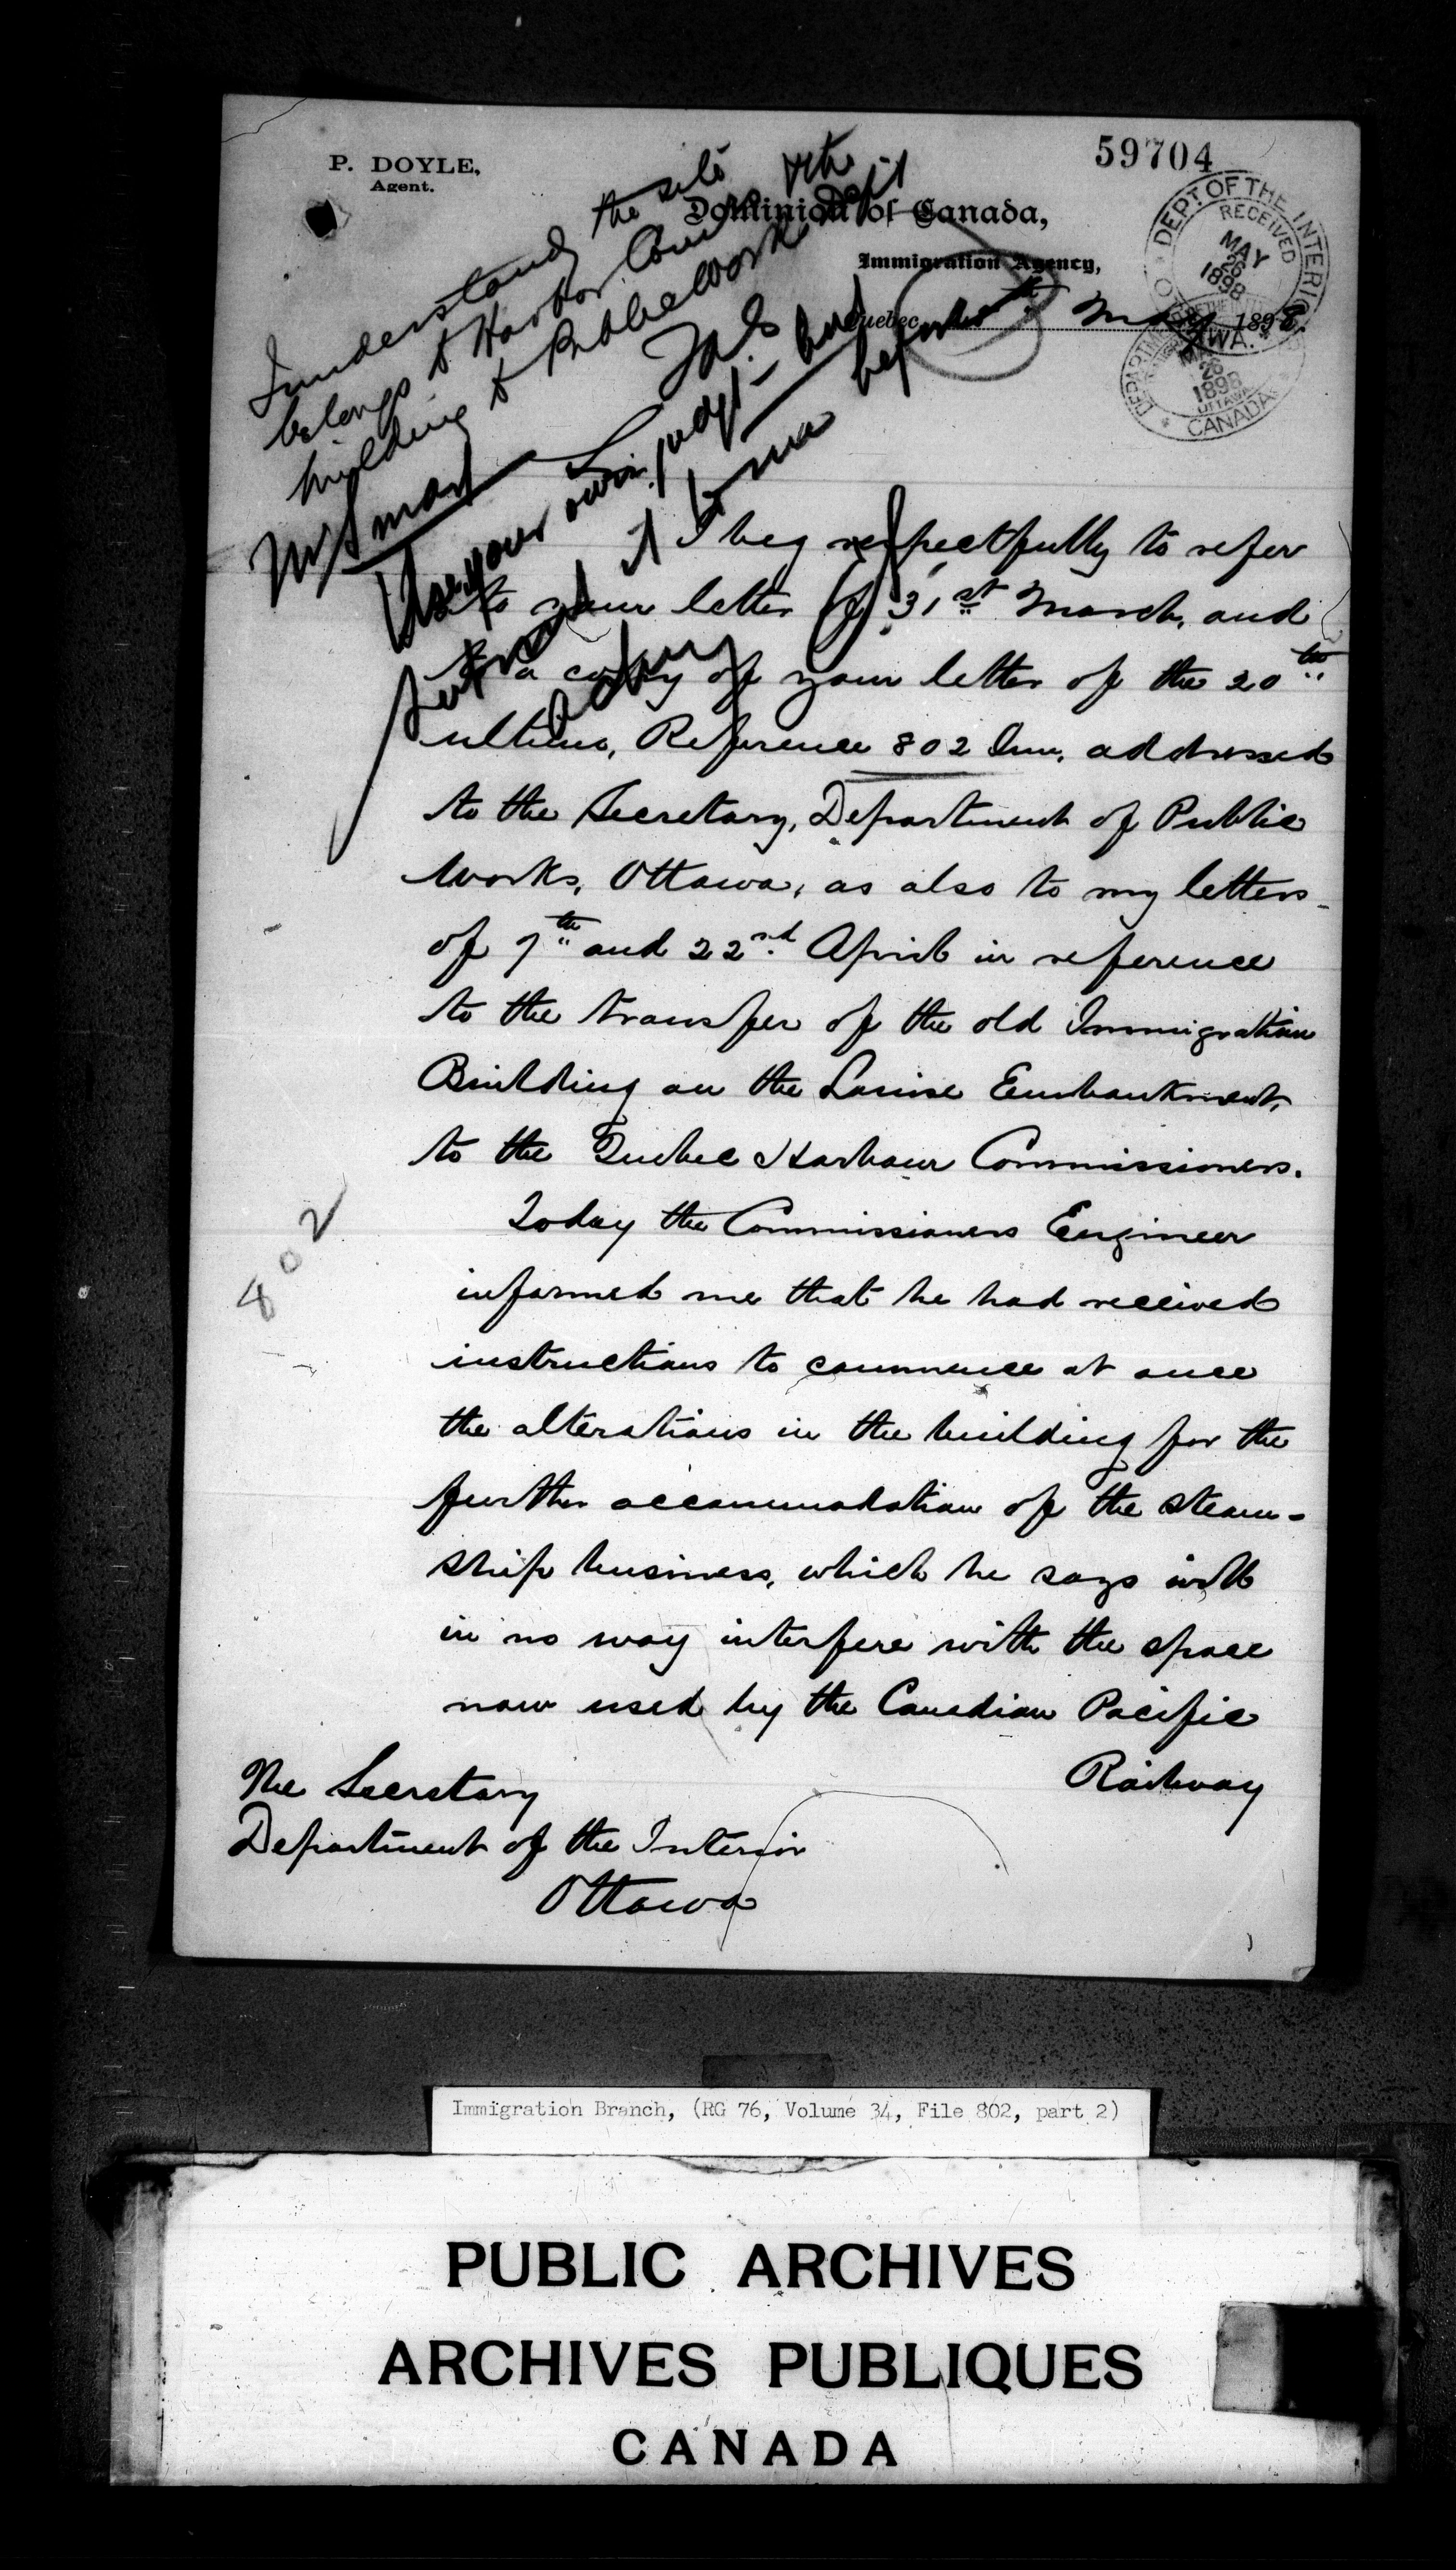 59704
P. DOYLE,
Agent.
Dominion of Canada,
Immigration Agency,
Quebec, May 1898.
DEPT. OF THE INTERIOR
RECEIVED
MAY
26
1898
OTTAWA.
1898
OTTAWA
CANADA
I understand the site
belongs to Harbor &the
building to Public Works Dept
JAS
Mr Smart
Use your own judgt - but
it to me before
Sir,
I beg respectfully to refer
to your letter of 31st March, and
to a copy of your letter of the 20th
ultimo, Reference 802 Imm. addressed
to the Secretary, Department of Public
Works, Ottawa, as also to my letters
of 7th and 22nd April in reference
to the transfer of the old Immigration
Building on the Louise Embankment,
to the Quebec Harbour Commissioners.
Today the Commissioners Engineer
informed me that he had received
instructions to commence at once
the alterations in the building for the
further accommodation of the steam-
ship business, which he says will
in no way interfere with the space
now used by the Canadian Pacific
Railway
802
The Secretary
Department of the Interior
Ottawa
Immigration Branch, (RG 76, Volume 34, File 802, part 2)
PUBLIC ARCHIVES
ARCHIVES PUBLIQUES
CANADA